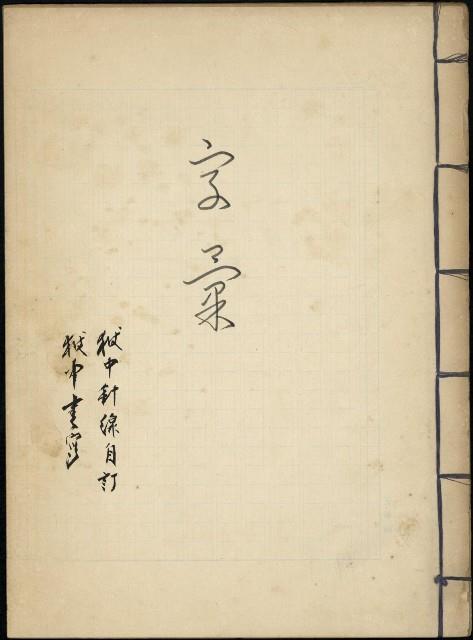 字彙
獄中針線自訂
獄中書寫